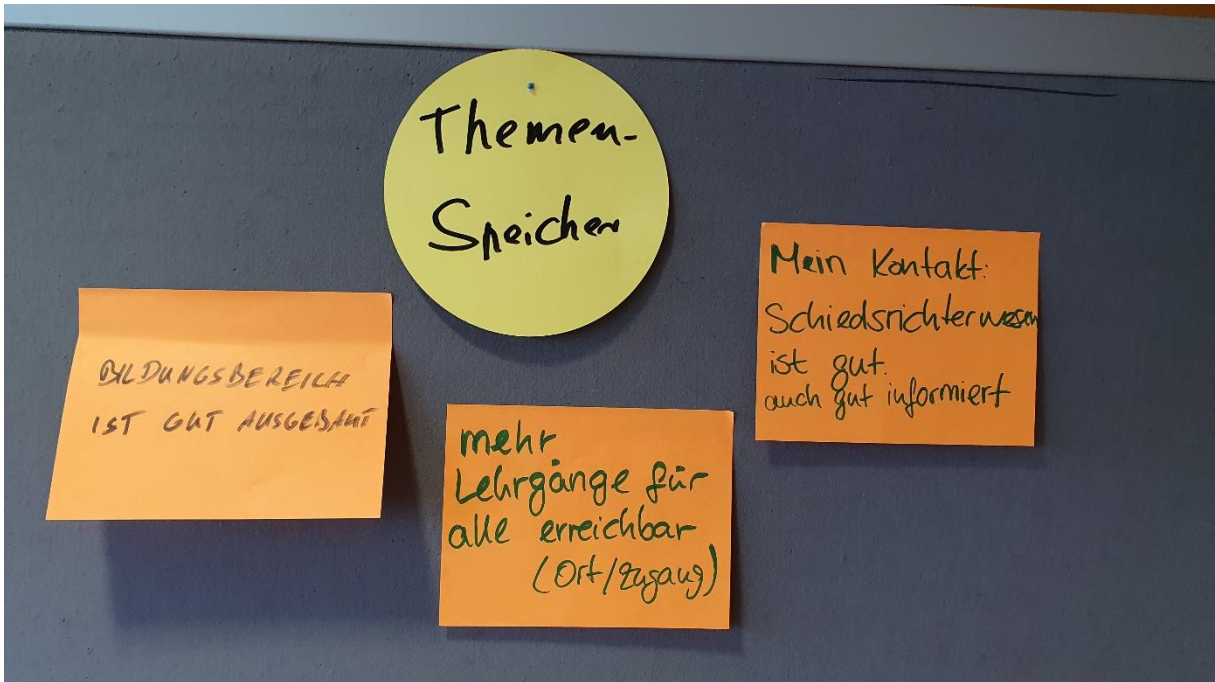 Themen-
Speicher
BILDUNGSBEREICH
IST GUT AUSGEBAUT
mehr
Lehrgänge für
alle erreichbar
(Ort/Zugang)
Mein Kontakt:
Schiedsrichterwesen
ist gut.
auch gut informiert